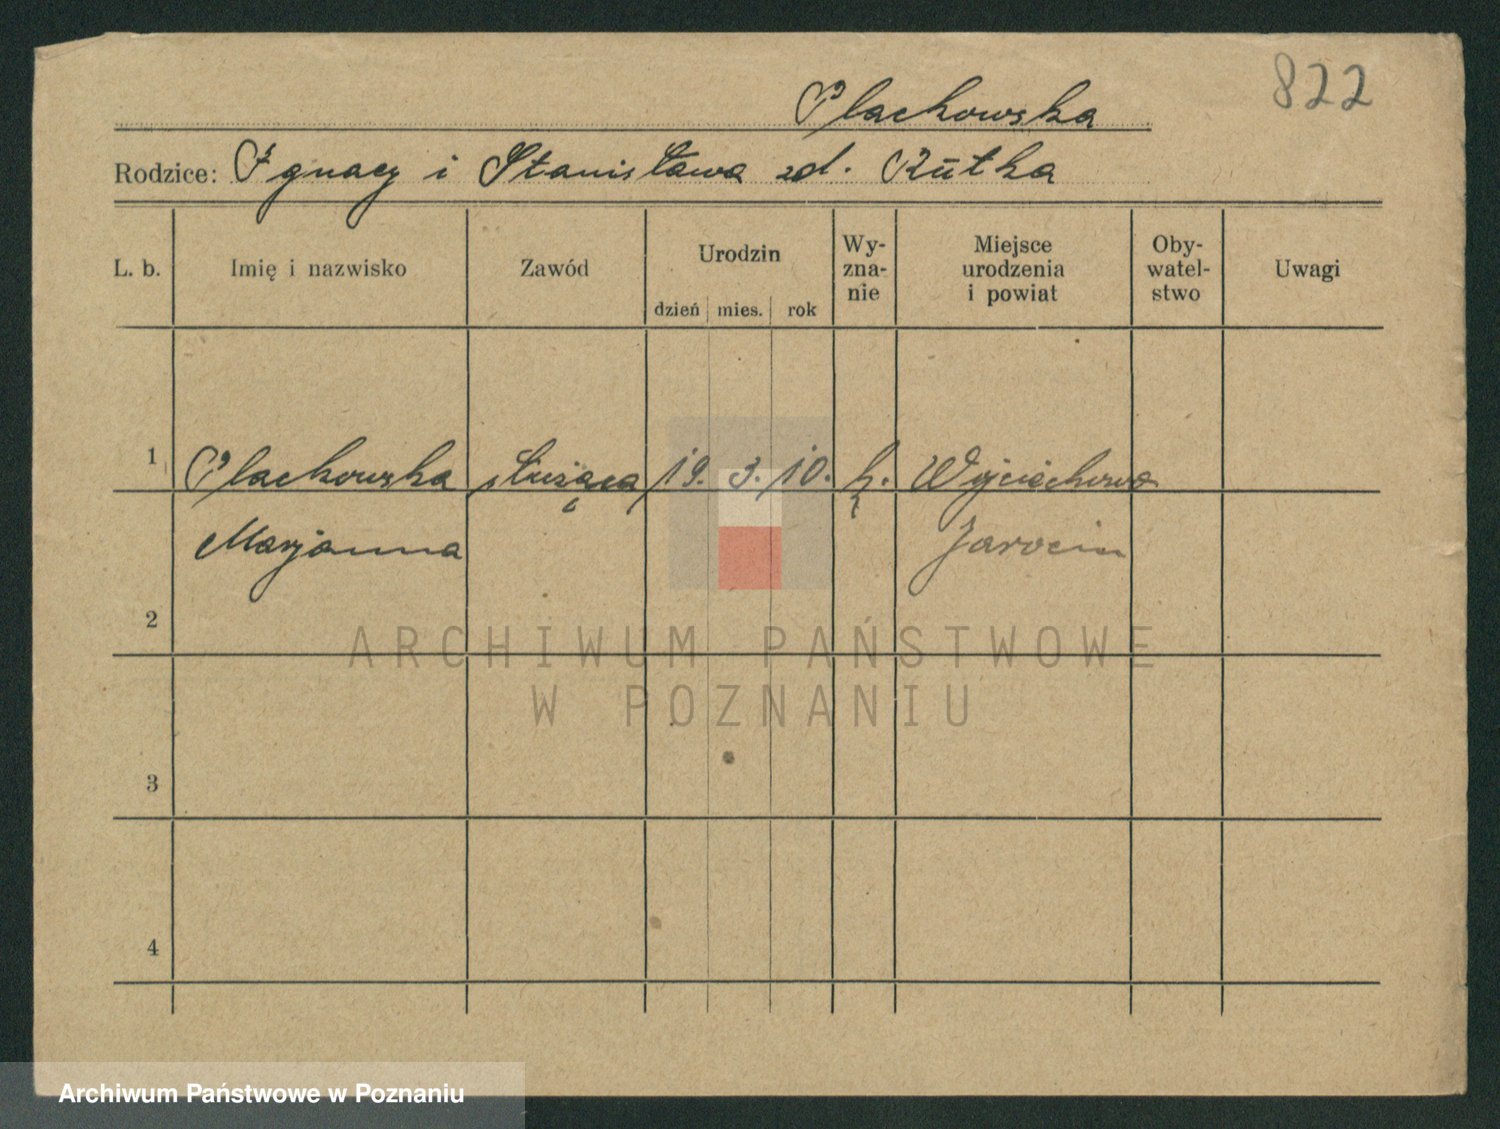 822
Plachowska
Rodzice: Ignacy i Stanisława zd. Kutka
L. b. Imię i nazwisko Zawód Urodzin dzień mies. rok Wy-zna-nie Miejsce urodzenia i powiat Oby-watel-stwo Uwagi
1 Plachowska służąca 19. 3. 10. k. Wojciechowo
Marjanna Jarocin
2
3
4
ARCHIWUM PAŃSTWOWE
W POZNANIU
Archiwum Państwowe w Poznaniu